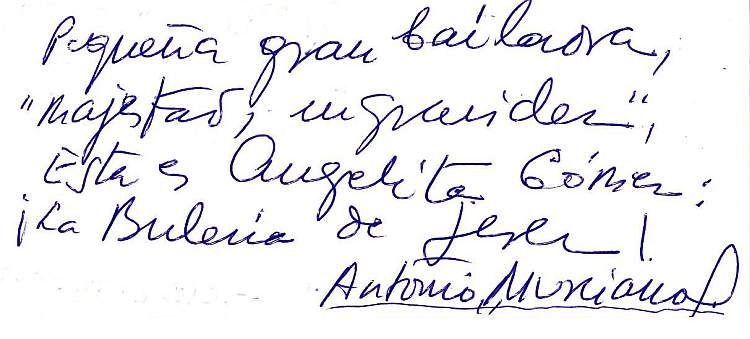 Pequeña gran bailaora,
"majestad, ingravidez",
Esta es Angelita Gómez:
¡La Bulería de Jerez!
Antonio Murciano